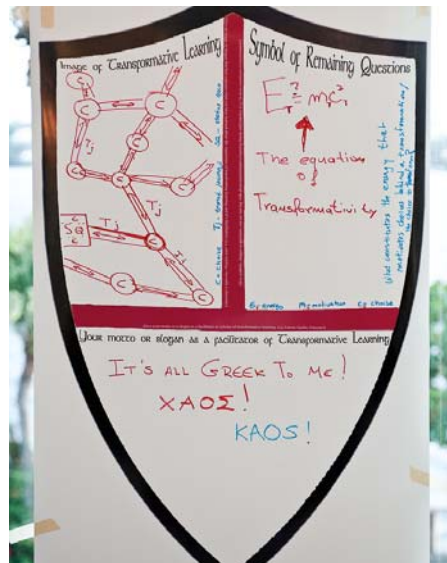 Image of Transformative Learning
C
C
C
C
C
C
C
Tj
Tj
Tj
SQ
C
C
C
C = choice Tj = travel journey SQ = status quo
Symbol of Remaining Questions
The equation
of
Transformativity
What constitutes the energy that
motivates choices behind a transformation/
E= energy M= motivation C= choice
Your motto or slogan as a facilitator of Transformative Learning
IT'S ALL GREEK TO ME!
ΧΑΟΣ!
KAOS!